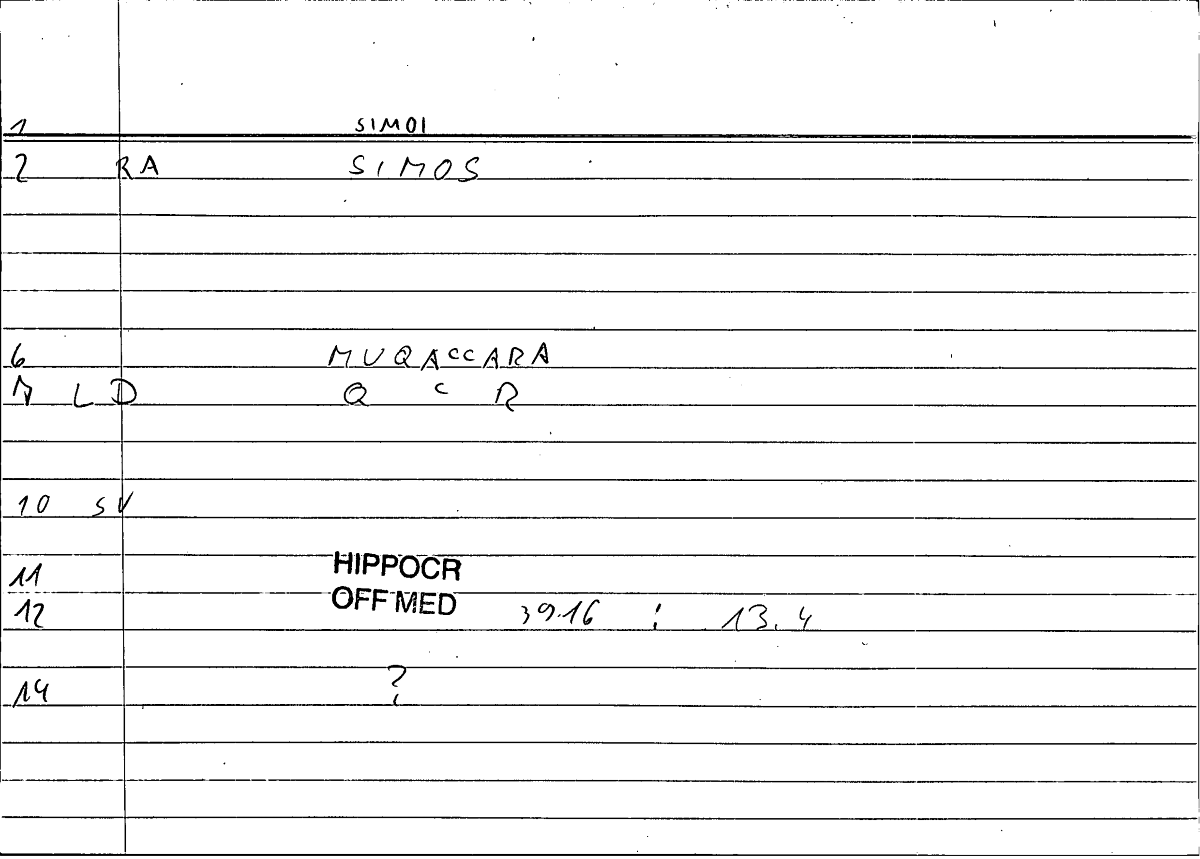 1 SIMOI
2 RA SIMOS
6 MUQACCARA
LD Q C R
10 SV
11 HIPPOCR
12 OFF MED 39.16 : 13.4
14 ?